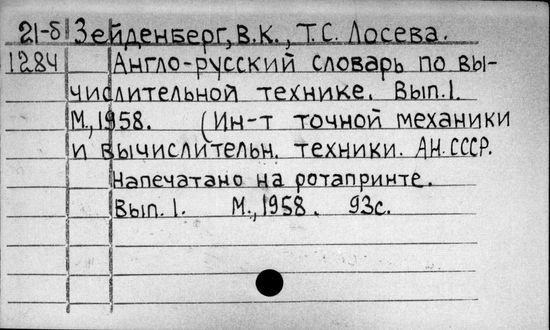 21-б Зейденберг, В.К., Т.С. Лосева.
1284 Англо-русский словарь по вы-
числительной технике. Вып.1.
М., 1958. (Ин-т точной механики
и вычислительн. техники. АН.СССР.
Напечатано на ротапринте.
Вып.1. М., 1958. 93с.